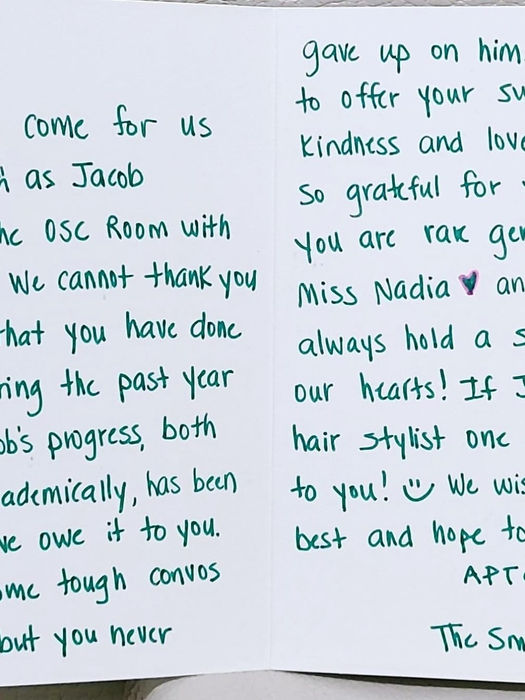 come for us
as Jacob
OSC Room with
We cannot thank you
that you have done
the past year
progress, both
has been
owe it to you.
tough convos
but you never
gave up on him
to offer your
kindness and
so grateful for
you are rare
Miss Nadia
always hold a
our hearts! If
hair stylist one
to you! We
best and hope
The